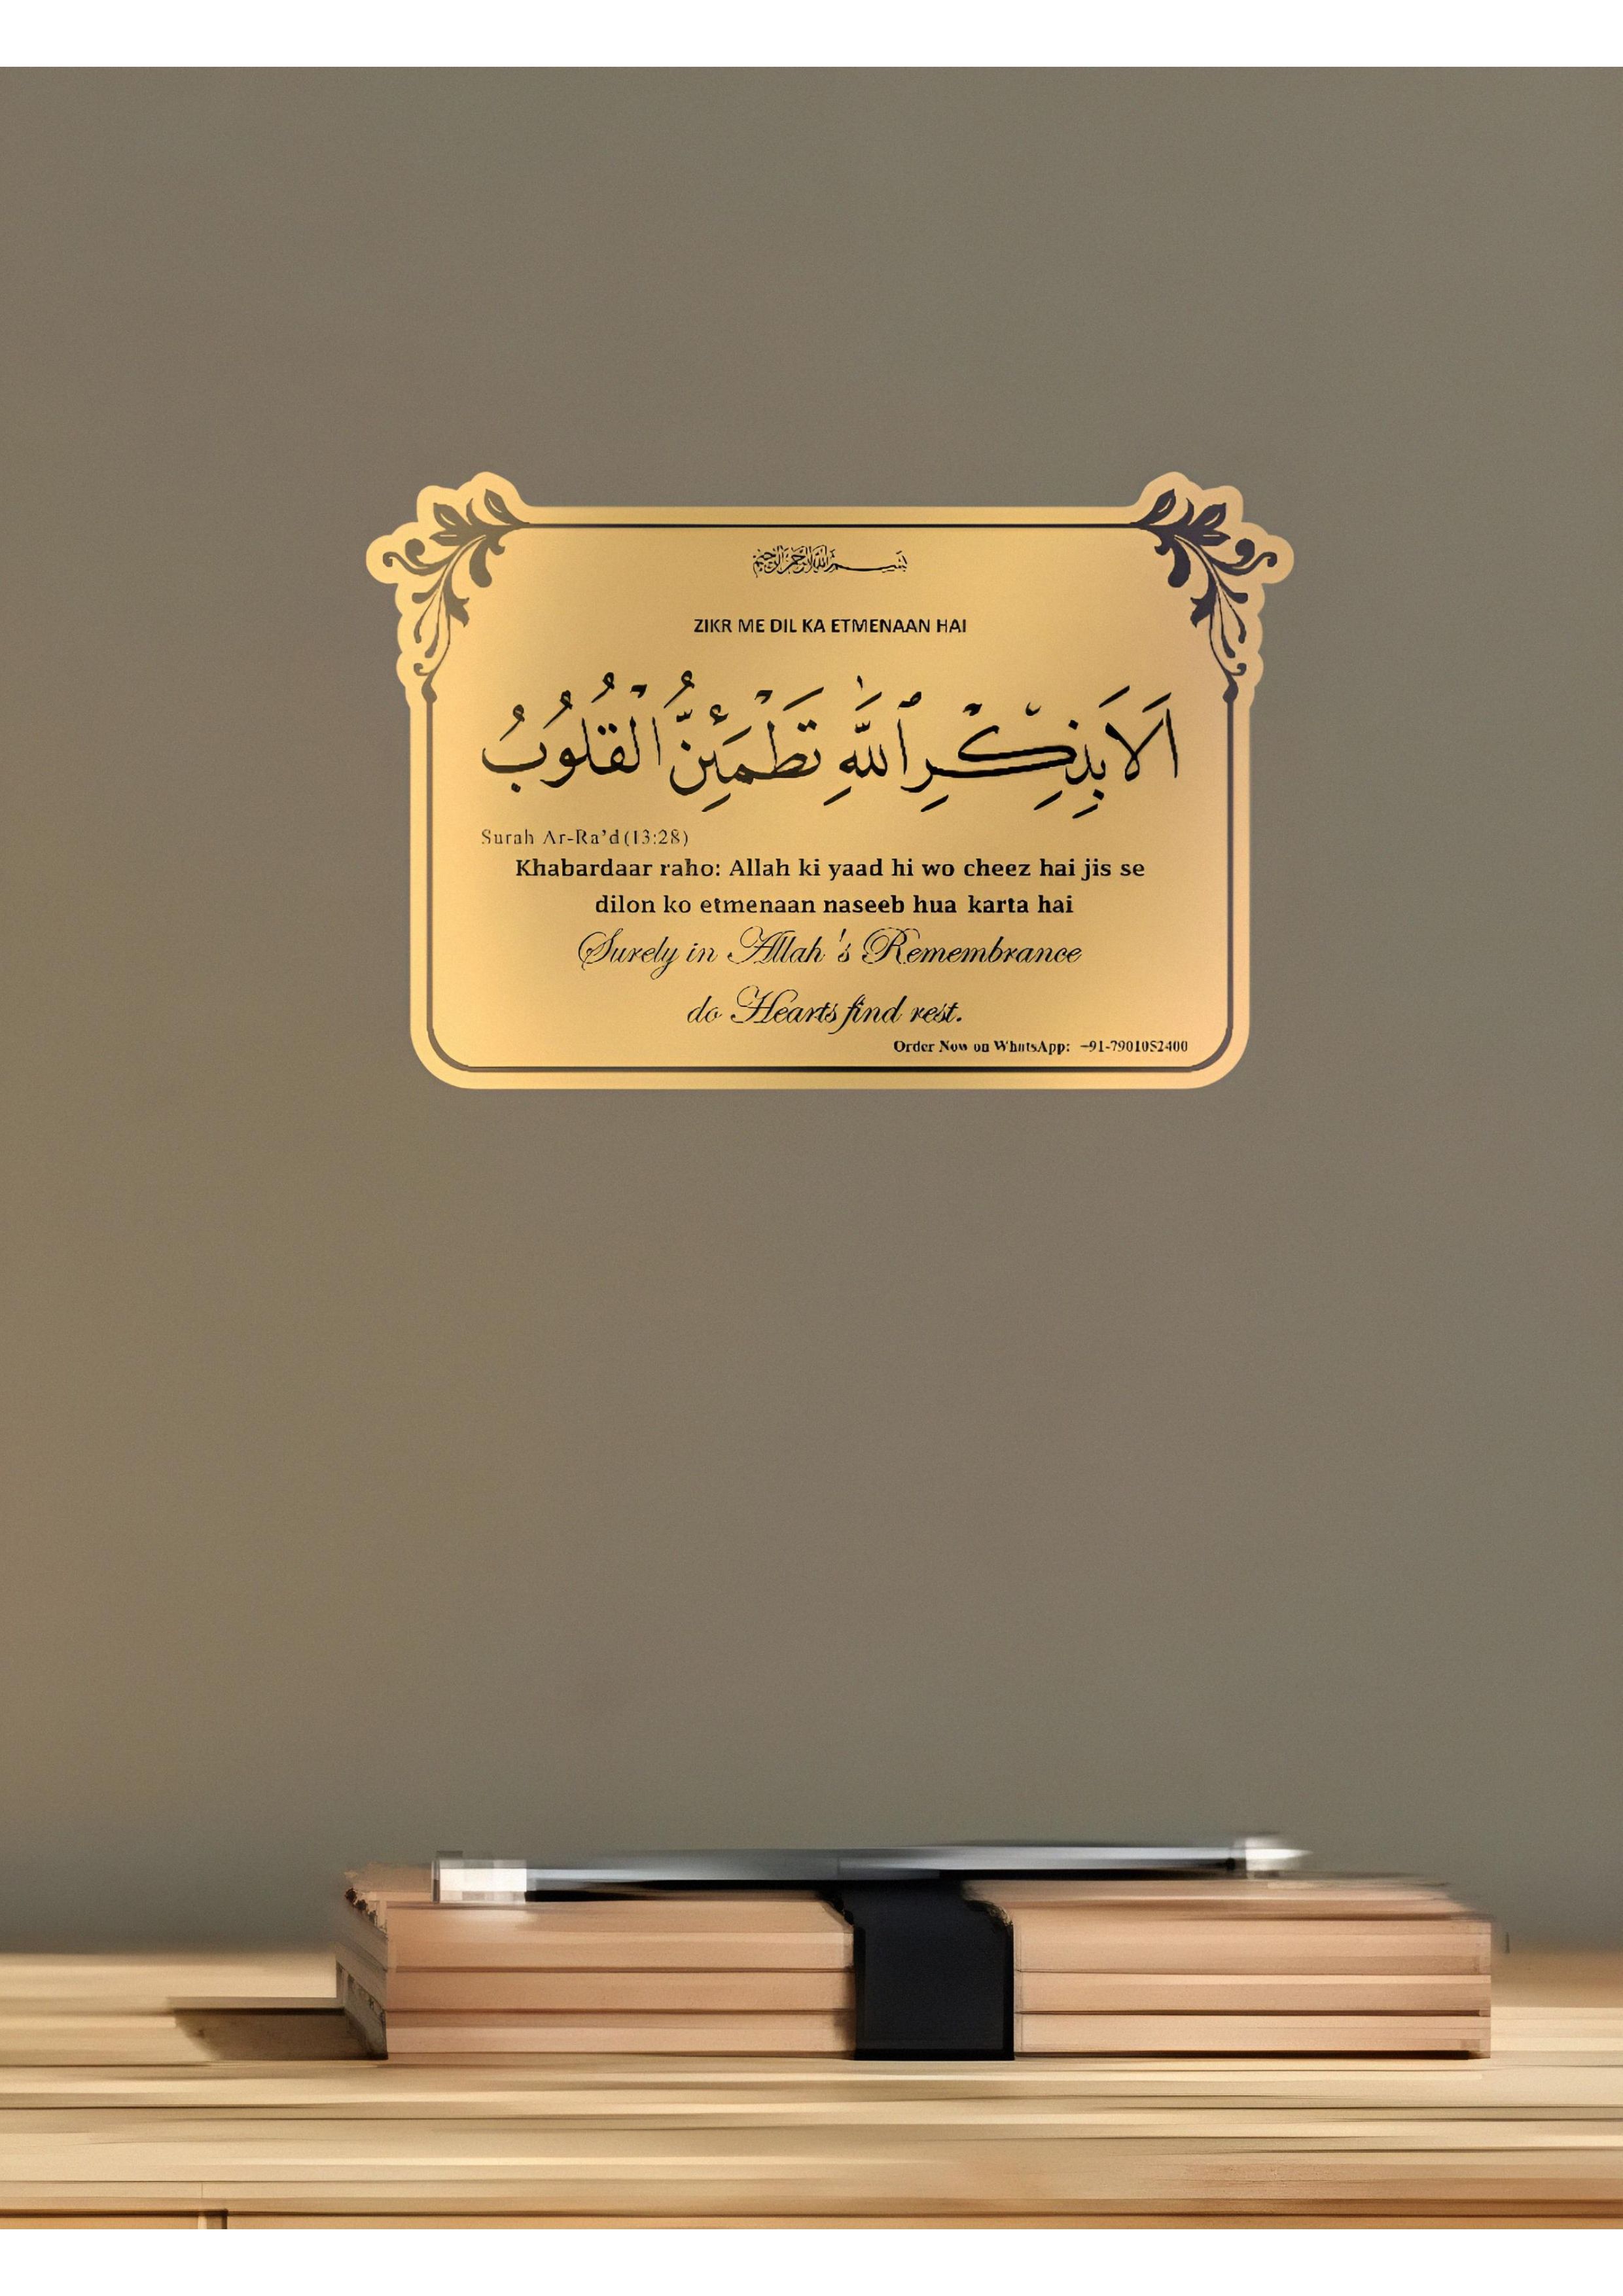 بسم الله الرحمن الرحيم
ZIKR ME DIL KA ETMENAAN HAI
اَلَا بِذِكْرِ ٱللَّهِ تَطْمَئِنُّ الْقُلُوبُ
Surah Ar-Ra'd (13:28)
Khabardaar raho: Allah ki yaad hi wo cheez hai jis se
dilon ko etmenaan naseeb hua karta hai
Surely in Allah's Remembrance
do Hearts find rest.
Order Now on WhatsApp: +91-7901052400